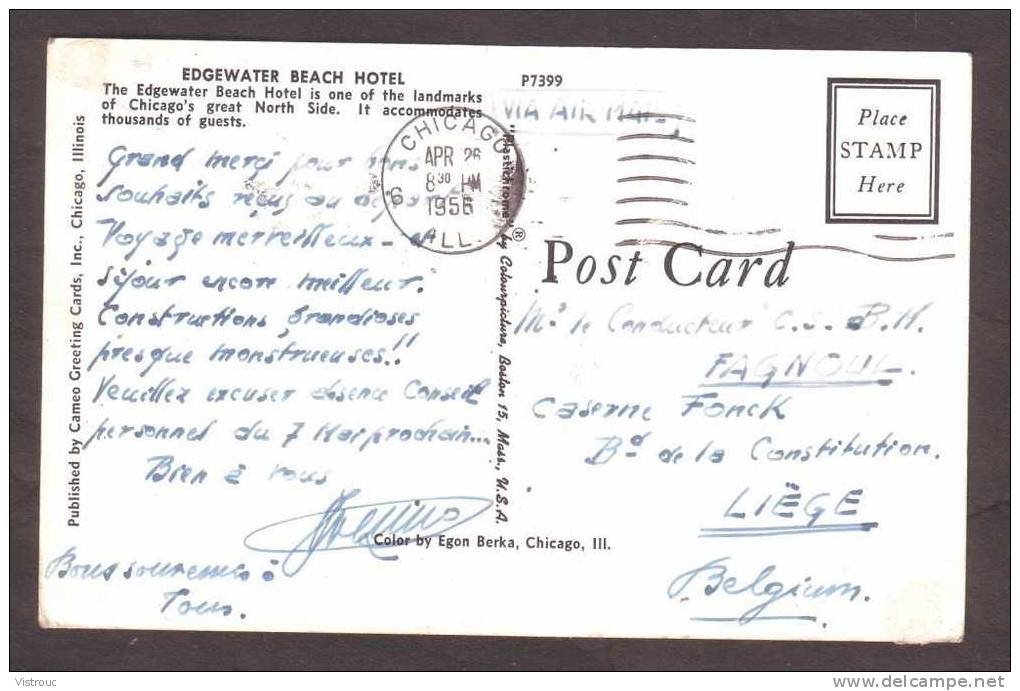 EDGEWATER BEACH HOTEL
The Edgewater Beach Hotel is one of the landmarks
of Chicago's great North Side. It accommodates
thousands of guests.
P7399
VIA AIR MAIL
CHICAGO
APR 26
8 30 PM
1956
6
ILL.
Place
STAMP
Here
Published by Cameo Greeting Cards, Inc., Chicago, Illinois
"Plastichrome" ® by Colourpicture, Boston 15, Mass., U.S.A.
Post Card
Grand merci pour bons
souhaits reçus au départ
Voyage merveilleux - et
séjour encore meilleur.
Constructions grandioses
presque monstrueuses!!
Veuillez excuser absence Conseil
personnel du 7 Mai prochain...
Bien à vous
Bons souvenirs à
Tous.
Mr le Conducteur C.S. B.H.
FAGNOUL.
Caserne Fonck
Bd de la Constitution.
LIÈGE
Belgium.
Color by Egon Berka, Chicago, Ill.
Vistrouc
delcampe.net